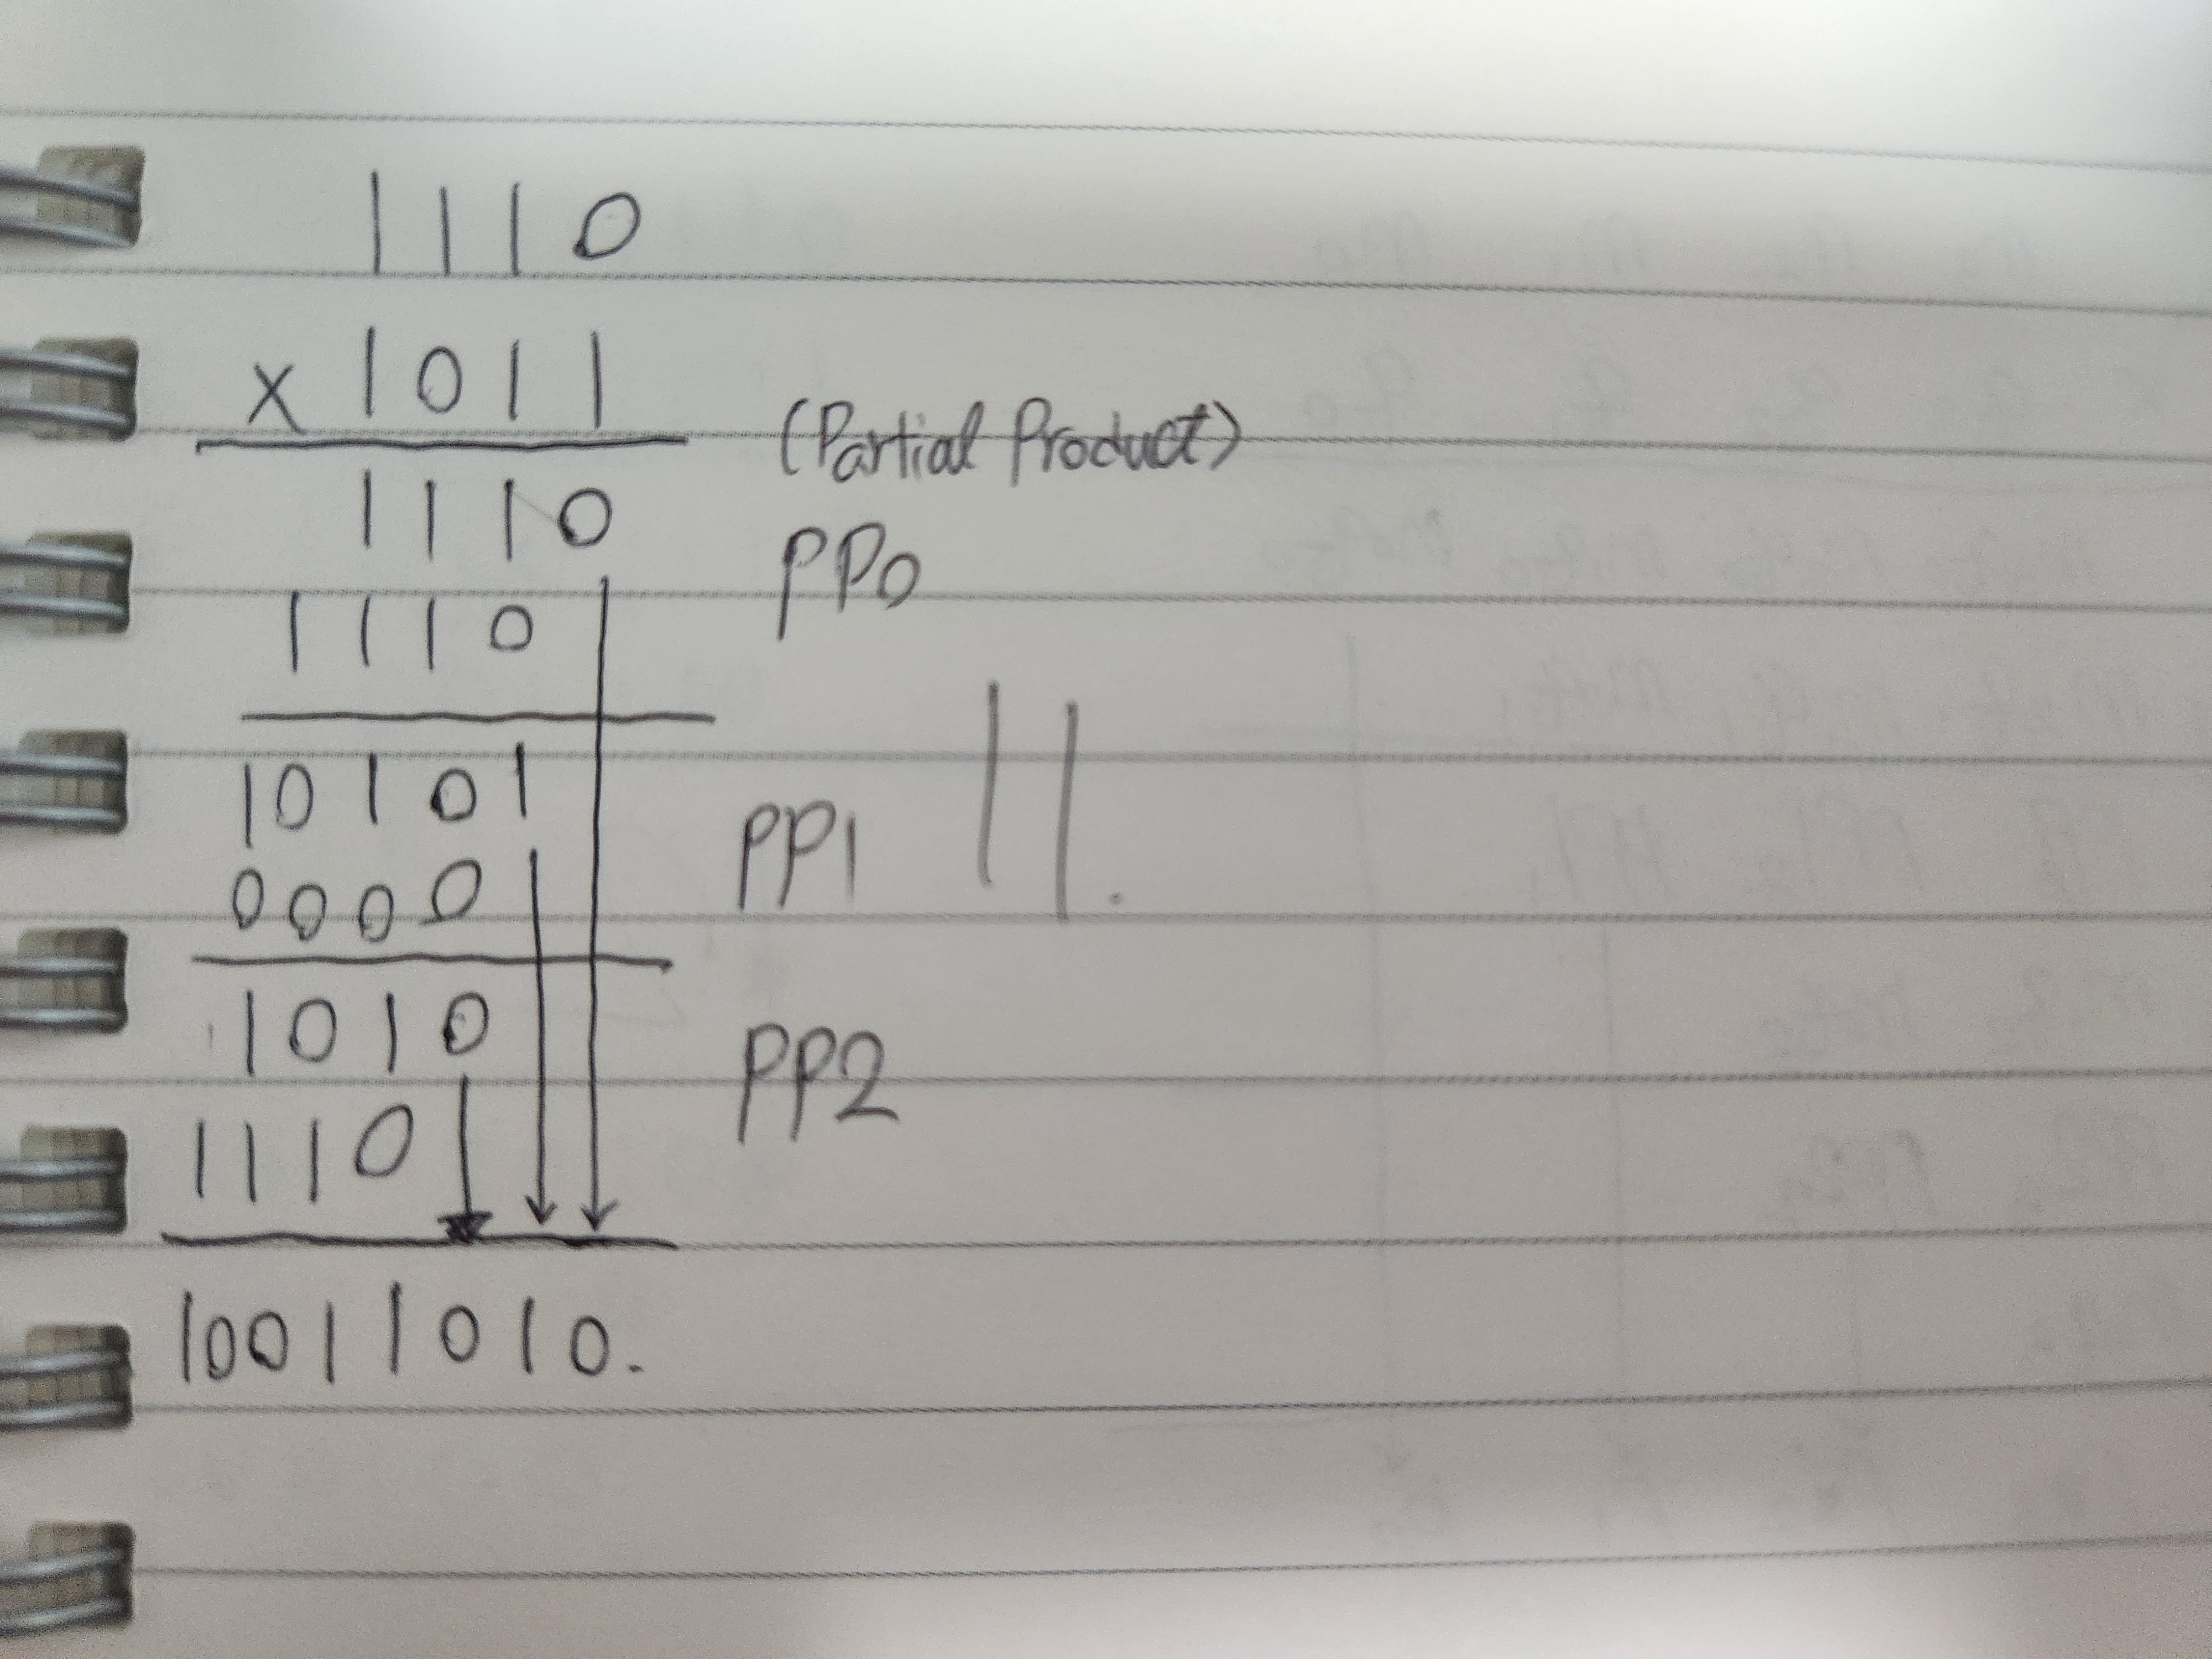 1110
x 1011
(Partial Product)
1110
PP0
1110
10101
PP1
11.
0000
1010
PP2
1110
10011010.